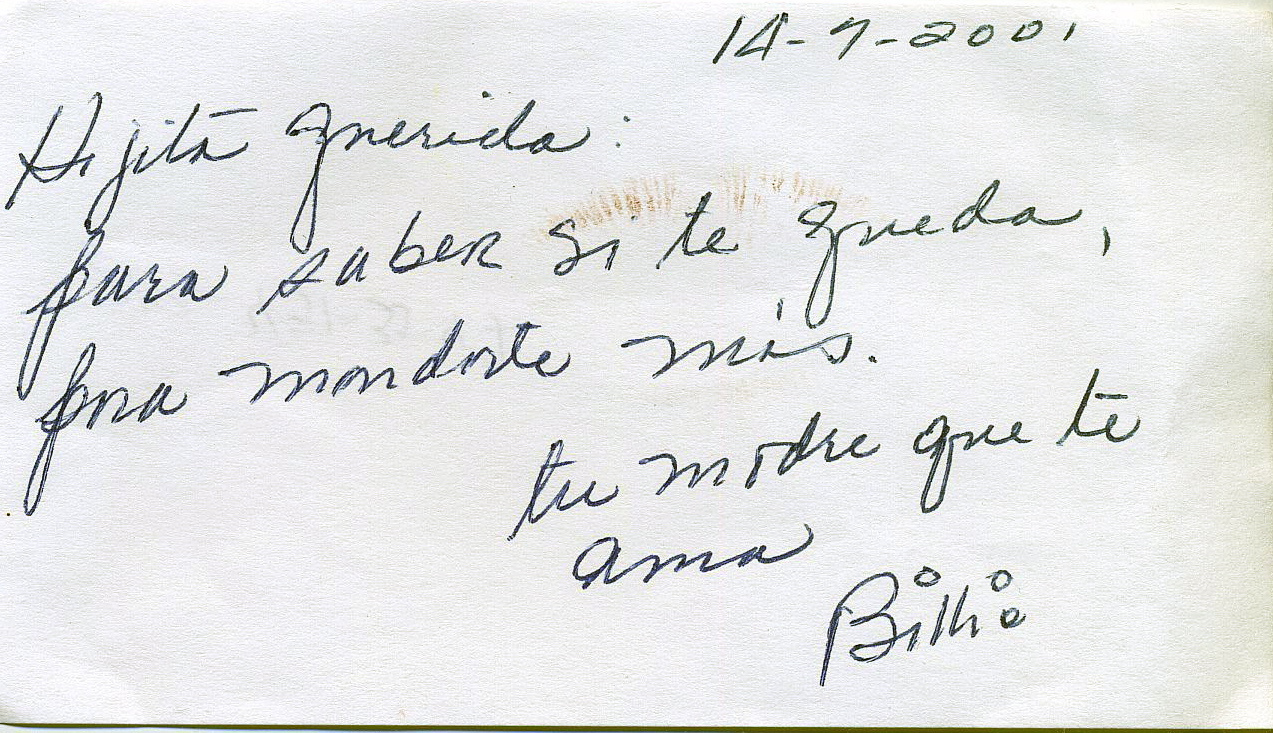 14-7-2001
Hijita querida:
para saber si te queda,
para mandarte más.
tu madre que te
ama
Billie